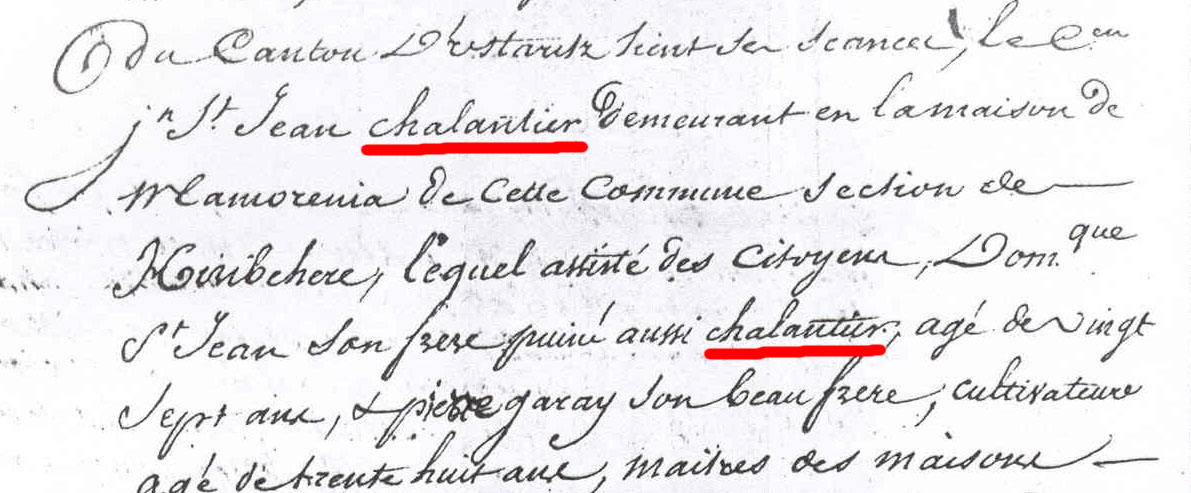 du Canton D'ustaritz tient ses seances, le Cen
jn St. Jean chalantier demeurant en la maison de
mamorenia de Cette Commune section de
Hiribehere, lequel assisté des Citoyens, Dom.que
St Jean son frere puiné aussi chalantier, agé de vingt
sept ans, & pierre garay son beau frere, cultivateurs
agé de trente huit ans, maitres des maisons